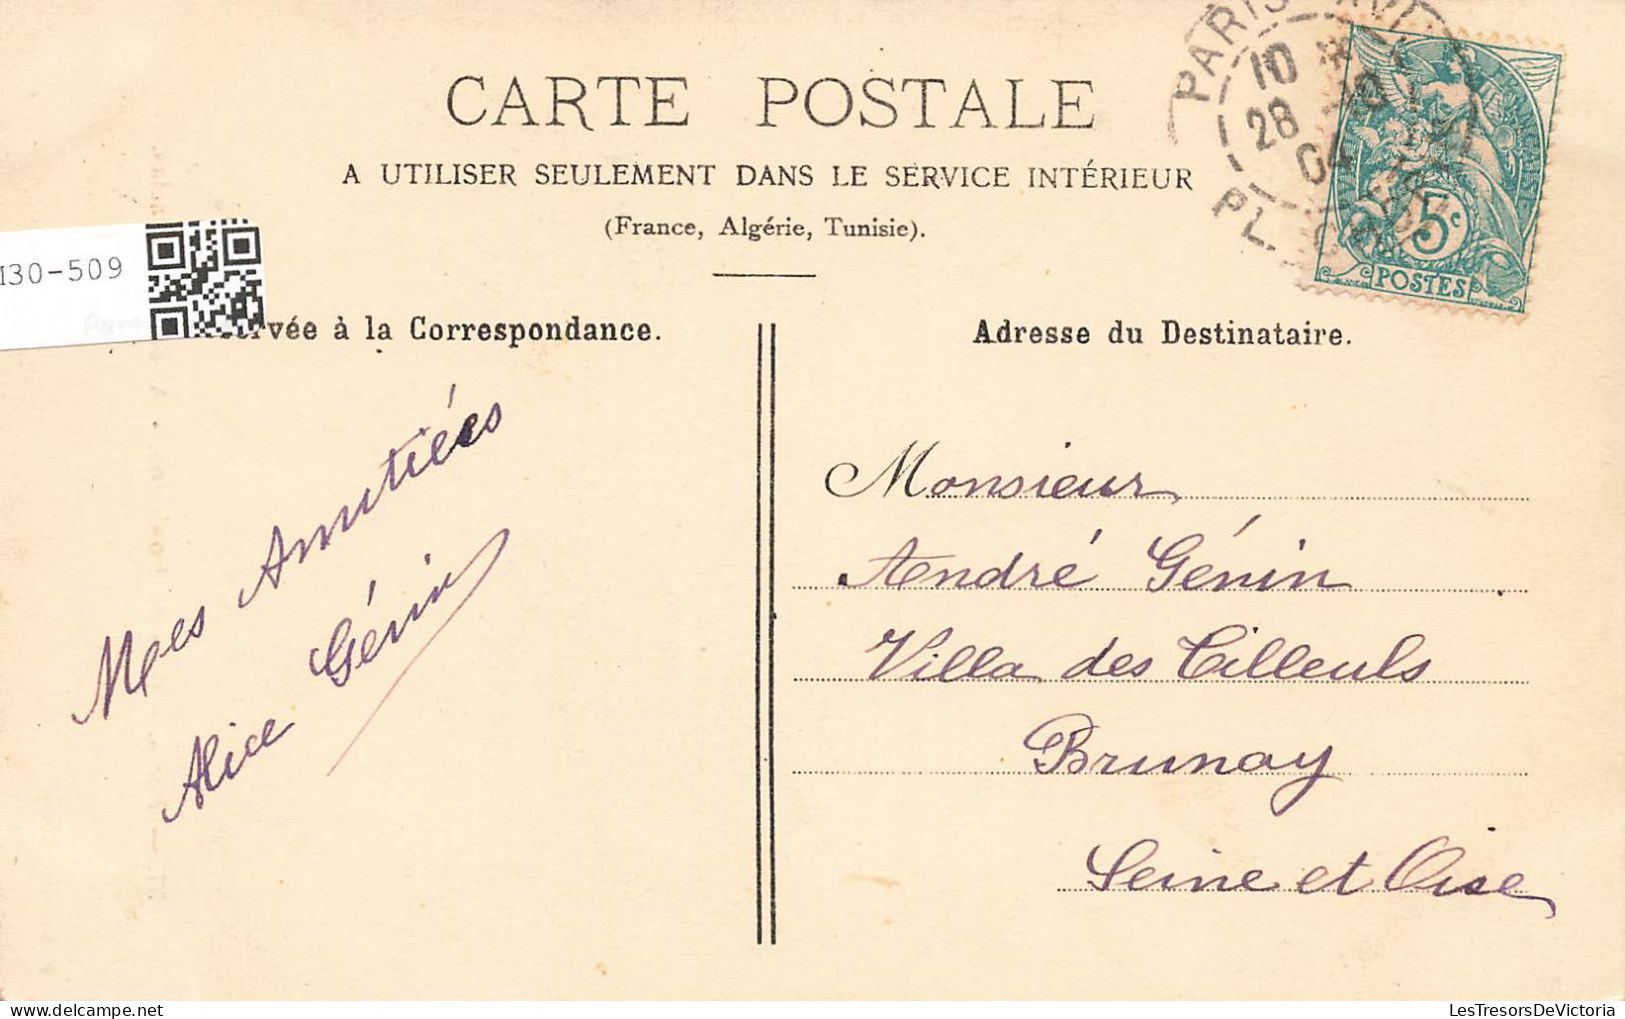 CARTE POSTALE
A UTILISER SEULEMENT DANS LE SERVICE INTÉRIEUR
(France, Algérie, Tunisie).
PARIS
10
28
04
PL.
5c
POSTES
M30-509
à la Correspondance.
Adresse du Destinataire.
Mes Amitiées
Alice Génin
Monsieur
André Génin
Villa des Tilleuls
Brunoy
Seine et Oise
LesTresorsDeVictoria